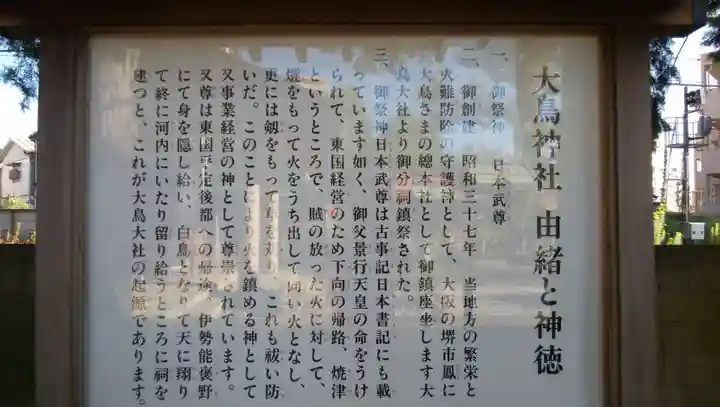 大鳥神社 由緒と神徳
一、御祭神 日本武尊
二、御創建 昭和三十七年 当地方の繁栄と
火難防除の守護神として、大阪の堺市鳳に
大鳥さまの總本社として御鎮座坐します大
鳥大社より御分祠鎮祭された。
三、御祭神日本武尊は古事記日本書記にも載
っています如く、御父景行天皇の命をうけ
られて、東国経営のため下向の帰路、焼津
というところで、賊の放った火に対して、
燧をもって火をうち出して向い火となし、
更には剱をもって草を刈り、これも祓い防
いだ。このことにより火を鎮める神として
又事業経営の神として尊崇されています。
又尊は東国平定後都への帰途、伊勢能褒野
にて身を隠し給い、白鳥となりて天に翔り
て終に河内にいたり留り給うところに祠を
建つと、これが大鳥大社の起源であります。